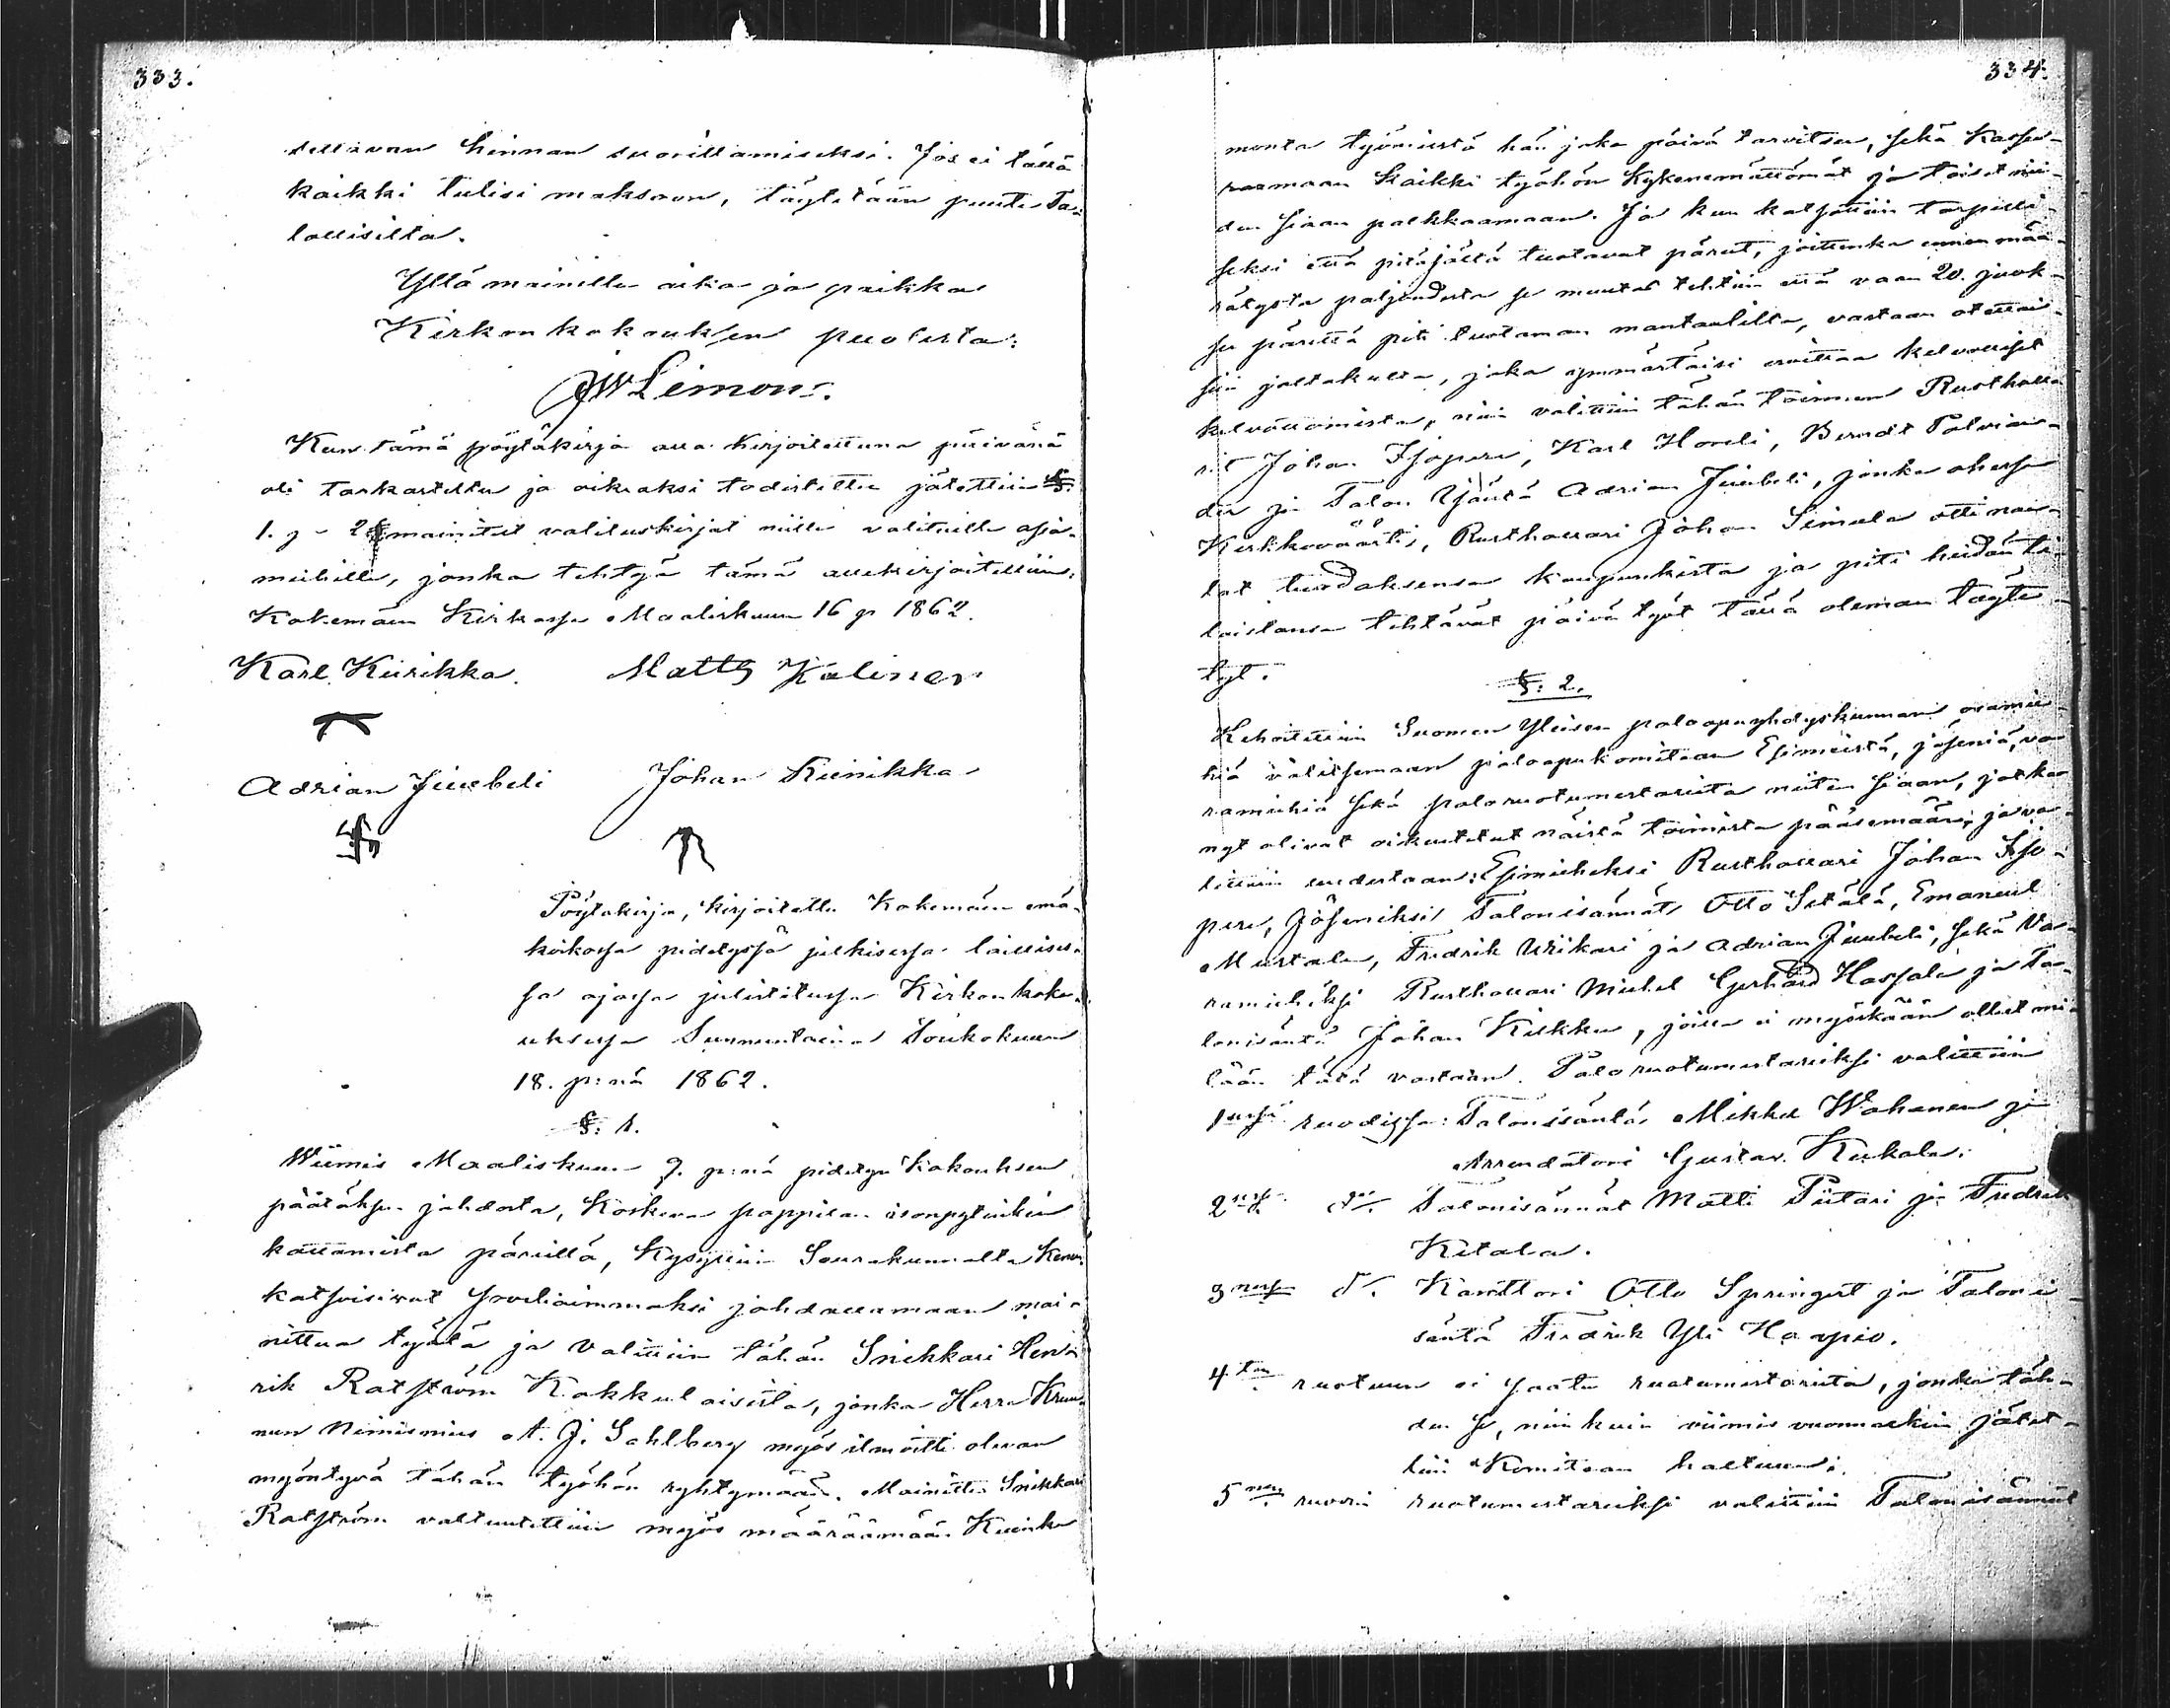 333.
sellaivan hinnan suorittamiseksi. Jos ei tässä
kaikki tulisi maksoon, täytetään puute Ta-
lollisilta.
Yllä mainittu aika ja paikka
Kirkonkokouksen puolesta:
JWLimon.
Kun tämä pöytäkirja alla kirjoitettuna päivänä
oli tarkastettu ja oikiaksi todistettu jätettiin §§:
1. j. 2 mainitut valituskirjat niille valituille asia-
miehille, jonka tehtyä tämä allekirjoitettiin:
Kokemäen Kirkossa Maaliskuun 16 p 1862.
Karl Kiirikka. Matts Kaliner
Adrian Juubeli Johan Kiinikka
Pöytäkirja, kirjoitettu Kokemäen emä-
kirkossa pidetyssä julkisessa laillises-
sa ajassa julistitussa Kirkonkoko-
uksessa Sunnuntaina Toukokuun
18. p:nä 1862.
§: 1.
Wiimis Maaliskuun 9. p:nä pidetyn Kokouksen
päätöksen johdosta, Kosken pappilan
kattamista päreillä, kysyttiin Seurakunnalta Kenen
katsoisivat soveliaimmaksi johdattamaan mai-
nittua työtä ja valittiin tähän Snikkari Hen-
rik Ratström Kakkulaisista, jonka Herra Kruu-
nun Nimismies A. J. Sahlberg myös ilmoitti olevan
myöntyvä tähän työhön ryhtymään. Mainittu Snikkari
Ratström valtuutettiin myös määräämään Kuinka
334.
monta työmiestä hän joka päivä tarvitsee, sekä Kassee-
raamaan kaikki työhön kykenemättömät ja toiset nii-
den siaan palkkaamaan. Ja kun katsottiin tarpeelli-
seksi että pitäjästä tuotavat päreet, joittenka ennen mää-
rätystä paljoudesta se muutos tehtiin että vaan 20. juok-
su pärettä piti tuotaman mantaalilta, vastaan otettai-
siin joltakulta, joka ymmärtäisi eroittaa kelvolliset
kelvottomista, niin valittiin tähän toimeen Rusthalla-
rit Johan Isopere, Karl Honeli, Berndt Palvian-
der ja Talon Isäntä Adrian Juubeli, jonka ohessa
Kirkkoväärti, Rusthollari Johan Simula otti nau-
lat tuodaksensa kaupunkista ja piti heidän ti-
laistansa tehtävät päivä työt tässä oleman täyte-
tyt.
§: 2.
Kehoitettiin Suomen Yleisen paloapuyhdyskunnan osamie-
hiä valitsemaan paloapukomitean Esimiestä, jäseniä, va-
ramiehiä sekä paloruotumestareita niiten siaan, jotka
nyt olivat oikeutetut näistä toimista pääsemään; ja va-
littiin uudestaan: Esimieheksi Rusthollari Johan Iso-
pere, Jäseniksi Talonisännät Otto Setälä, Emanuel
Mustala, Fredrik Uiikari ja Adrian Juubeli, sekä Va-
ramieheksi Rusthollari Mickel Gerhard Hassala ja Ta-
lonisäntä Johan Kiekku, joilla ei myöskään ollut mi-
tään tätä vastaan. Paloruotumestareiksi valittiin
1sessä ruodissa: Talonisäntä Mikkel Wahanen ja
Arrendatori Gustav Kukola.
2sessa do. Talonisännät Matti Piitari ja Fredrik
Kitala.
3nessa do. Kanttori Otto Springert ja Taloni-
säntä Fredrik Yli Haapio.
4tn ruotuun ei saatu ruotumestareita, jonka täh-
den se, niin kuin viimis vuonnaekin jätet-
tiin Komitean haltuun.
5nen ruodin ruotumestareiksi valittiin Talonisännät